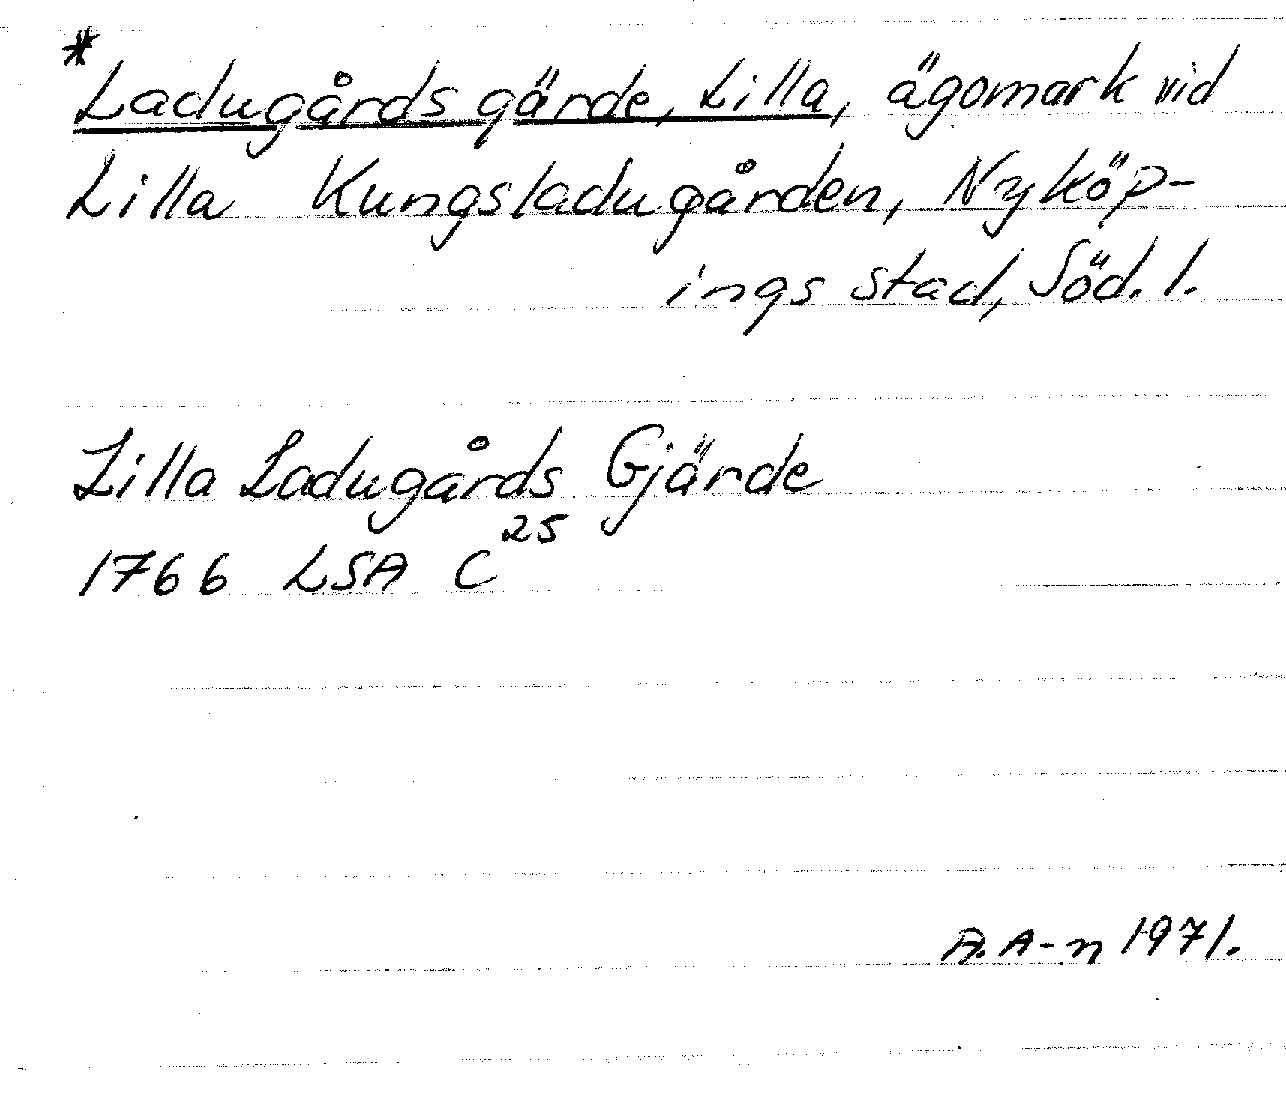 * Ladugårdsgärde, Lilla, ägomark vid
Lilla Kungsladugården, Nyköp-
ings stad, Söd. l.
Lilla Ladugårds Gjärde
1766 LSA C 25
A. A-n 1971.